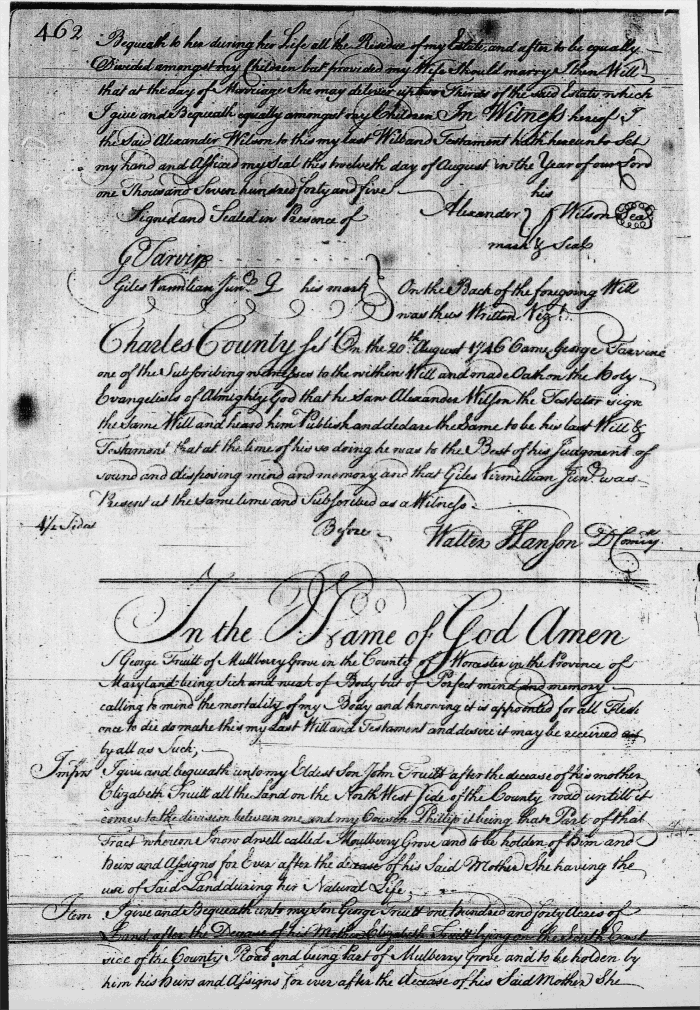 462
Bequeath to her during her Life all the Residue of my Estate and after to be equally
Divided amongst my Children but provided my Wife Should marry I then Will
that at the day of Marriage She may deliver up two Thirds of the said Estate which
I give and Bequeath equally amongst my Children In Witness hereof I
the Said Alexander Wilson to this my last Will and Testament hath hereunto Set
my hand and Affixed my Seal this twelfth day of August in the Year of our Lord
one Thousand Seven hundred forty and five
his
Signed and Sealed in Presence of Alexander Wilson Seal
mark & Seal
G Tarvin
Giles Vermilian Junr. his mark On the Back of the foregoing Will
was thus Written Vizt.
Charles County Sst. On the 20th August 1746 Came George Tarvine
one of the Subscribing witnesses to the within Will and made Oath on the Holy
Evangelists of Almighty God that he Saw Alexander Wilson the Testator sign
the Same Will and heard him Publish and declare the Same to be his last Will &
Testament that at the time of his so doing he was to the Best of his Judgment of
sound and disposing mind and memory and that Giles Virmilian Junr. was
Present at the same time and Subscribed as a Witness
4 1/2 Sides Before Walter Hanson D Comry.
In the Name of God Amen
I George Truitt of Mullberry Grove in the County of Worcester in the Province of
Maryland being Sick and weak of Body but of Perfect mind and memory
calling to mind the mortality of my Body and knowing it is appointed for all Flesh
once to die do make this my Last Will and Testament and desire it may be received
by all as Such,
Imprs I give and bequeath unto my Eldest Son John Truitt after the decease of his mother
Elizabeth Truitt all the Land on the North West side of the County road untill it
comes to the division between me and my Couson Phillip it being that Part of that
Tract whereon I now dwell called Moulberry Grove and to be holden of him and
heirs and Assigns for Ever after the decease of his Said Mother She having the
use of Said Land during her Natural Life
Item I give and Bequeath unto my Son George Truitt one hundred and forty Acres of
Land after the Decease of his Mother Elizabeth Truitt lying on the South East
side of the County Road and being Part of Mulberry Grove and to be holden by
him his Heirs and Assigns for ever after the decease of his Said Mother She